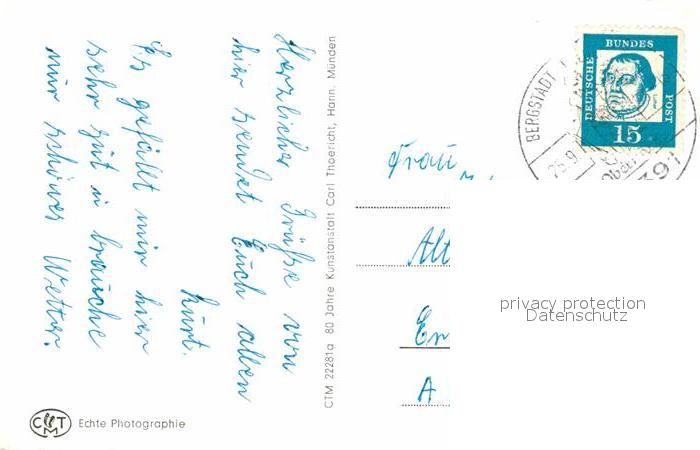 Herzlicher Grüße von
hier sendet Euch allen
Kurt.
Es gefällt mir hier
sehr gut u brauche
nur schönes Wetter.
CTM 22281a 80 Jahre Kunstanstalt Carl Thoericht, Hann. Münden
CTM
Echte Photographie
Frau
Alt
En
A
DEUTSCHE BUNDES POST
15
BERGSTADT
25.9.
391
privacy protection
Datenschutz